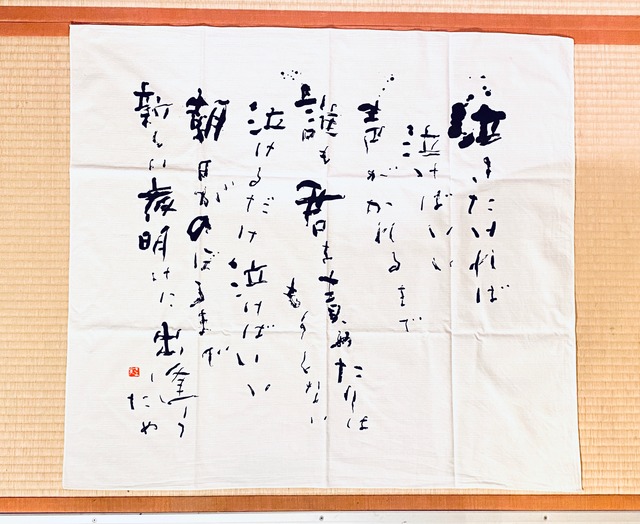 泣きたければ
泣けばいい
声がかれるまで
誰も君を責めたりは
しない
泣けるだけ泣けばいい
朝日がのぼるまで
新しい夜明けに出逢う
ため